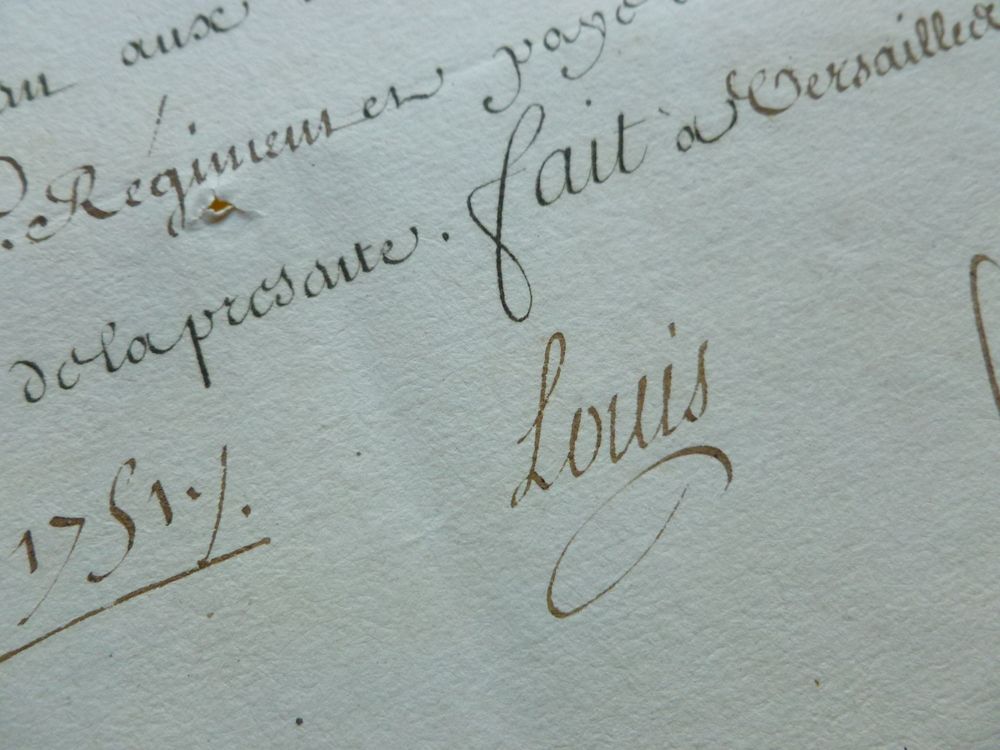 aux
Regiment en paye
de la presante. fait à Versailles
1751.
Louis